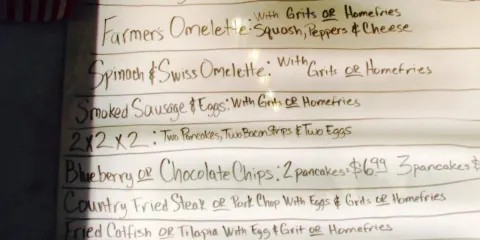 With Grits or Homefries
Farmers Omelette: Squash, Peppers & Cheese
Spinach & Swiss Omelette: With Grits or Homefries
Smoked Sausage & Eggs: With Grits or Homefries
2x2x2: Two Pancakes, Two Bacon Strips & Two Eggs
Blueberry or Chocolate Chips: 2 pancakes=$6.99 3 pancakes $
Country Fried Steak or Pork Chop With Eggs & Grits or Homefries
Fried Catfish or Tilapia With Egg & Grit or Homefries